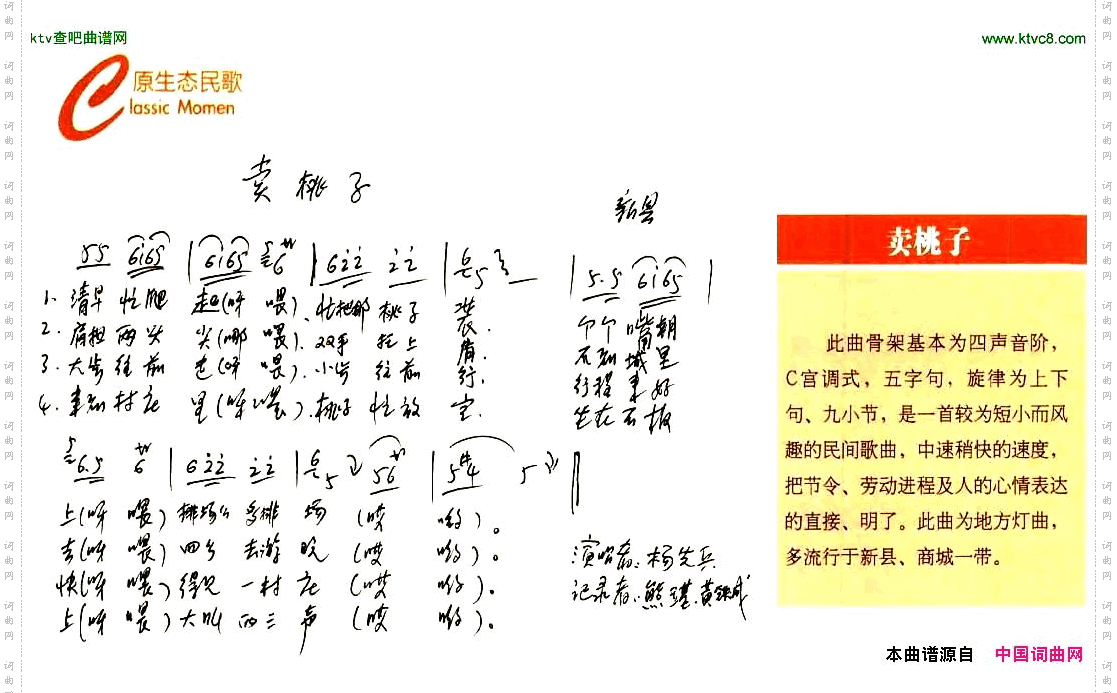 ktv查吧曲谱网
www.ktvc8.com
原生态民歌
lassic Momen
卖桃子
新县
55 6i65 | 6i65 6 | 6 2̇2̇ 2̇2̇ | 6 5 3 | 5.5 6i65 |
1. 清早忙爬起(呀喂)、忙把那桃子装. 个个嘴朝
2. 肩担两头尖(哪喂). 双手托上肩. 不知城里
3. 大步往前走(呀喂). 小步往前行. 行程来好
4. 来到村庄里(呀喂). 桃子忙放定. 坐在石板
6.5 6 | 6 2̇2̇ 2̇2̇ | 6 5 56 | 5#4 5 ‖
上(呀喂)排场么多排场(哎哟)。
去(呀喂)四乡去游玩(哎哟)。
快(呀喂)得见一村庄(哎哟)。
上(呀喂)大叫两三声(哎哟)。
演唱者:杨先兵
记录者:熊 黄
卖桃子
此曲骨架基本为四声音阶，
C宫调式，五字句，旋律为上下
句、九小节，是一首较为短小而风
趣的民间歌曲，中速稍快的速度，
把节令、劳动进程及人的心情表达
的直接、明了。此曲为地方灯曲，
多流行于新县、商城一带。
本曲谱源自 中国词曲网